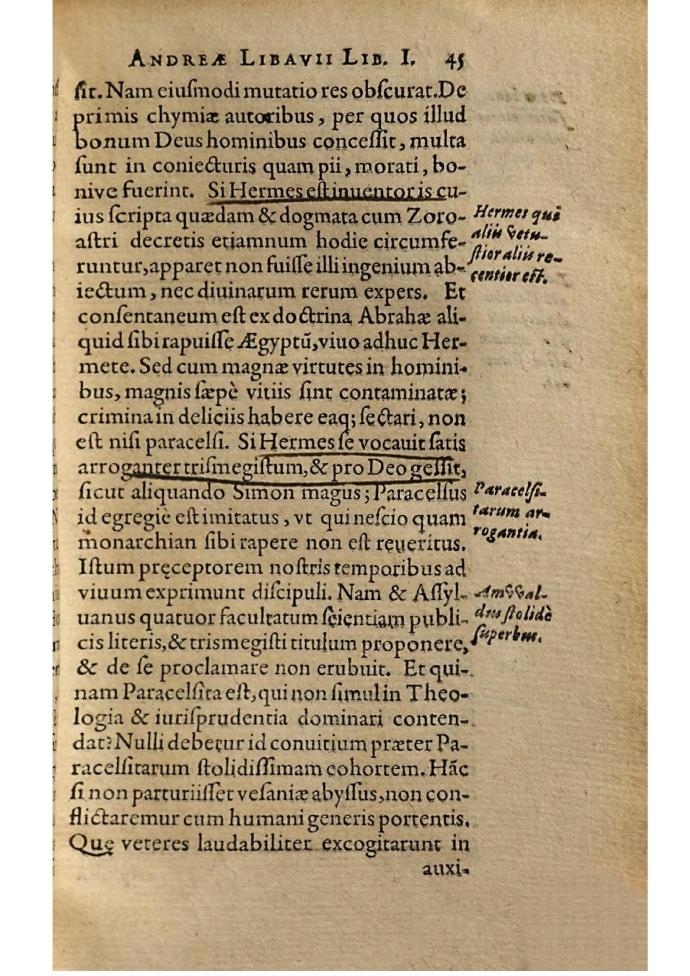 ANDREÆ LIBAVII LIB. I. 45
ſit. Nam eiuſmodi mutatio res obſcurat. De
primis chymiæ autoribus, per quos illud
bonum Deus hominibus conceſſit, multa
ſunt in coniecturis quam pii, morati, bo-
nive fuerint. Si Hermes eſt inuentor is cu-
ius ſcripta quædam & dogmata cum Zoro-
aſtri decretis etiamnum hodie circumfe-
runtur, apparet non fuiſſe illi ingenium ab-
iectum, nec diuinarum rerum expers. Et
conſentaneum eſt ex doctrina Abrahæ ali-
quid ſibi rapuiſſe Ægyptũ, viuo adhuc Her-
mete. Sed cum magnæ virtutes in homini-
bus, magnis ſæpè vitiis ſint contaminatæ;
crimina in deliciis habere eaq; ſectari, non
eſt niſi paracelſi. Si Hermes ſe vocauit ſatis
arroganter triſmegiſtum, & pro Deo geſſit,
ſicut aliquando Simon magus; Paracelſus
id egregiè eſt imitatus, vt qui neſcio quam
monarchian ſibi rapere non eſt reueritus.
Iſtum pręceptorem noſtris temporibus ad
viuum exprimunt diſcipuli. Nam & Aſſyl-
uanus quatuor facultatum ſcientiam publi-
cis literis, & trismegiſti titulum proponere,
& de ſe proclamare non erubuit. Et qui-
nam Paracelſita eſt, qui non ſimul in Theo-
logia & iuriſprudentia dominari conten-
dat? Nulli debetur id conuitium præter Pa-
racelſitarum ſtolidiſſimam cohortem. Hãc
ſi non parturiiſſet veſaniæ abyſſus, non con-
flictaremur cum humani generis portentis.
Quę veteres laudabiliter excogitarunt in
auxi-
Hermes qui
aliis vetu-
ſtior aliis re-
centior eſt.
Paracelſi-
tarum ar-
rogantia.
Amvval-
dus ſtolidè
ſuperbus.